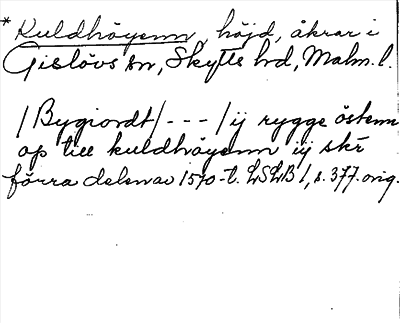 * Kuldhöyenn, höjd, åkrar i
Gislövs sn, Skytts hd, Malm. l.
/Bygiordt/ - - - /ij rygge östenn
op till kuldhöyenn iij skr
förra delen av 1570-t. LSLB 1, s. 377. orig.